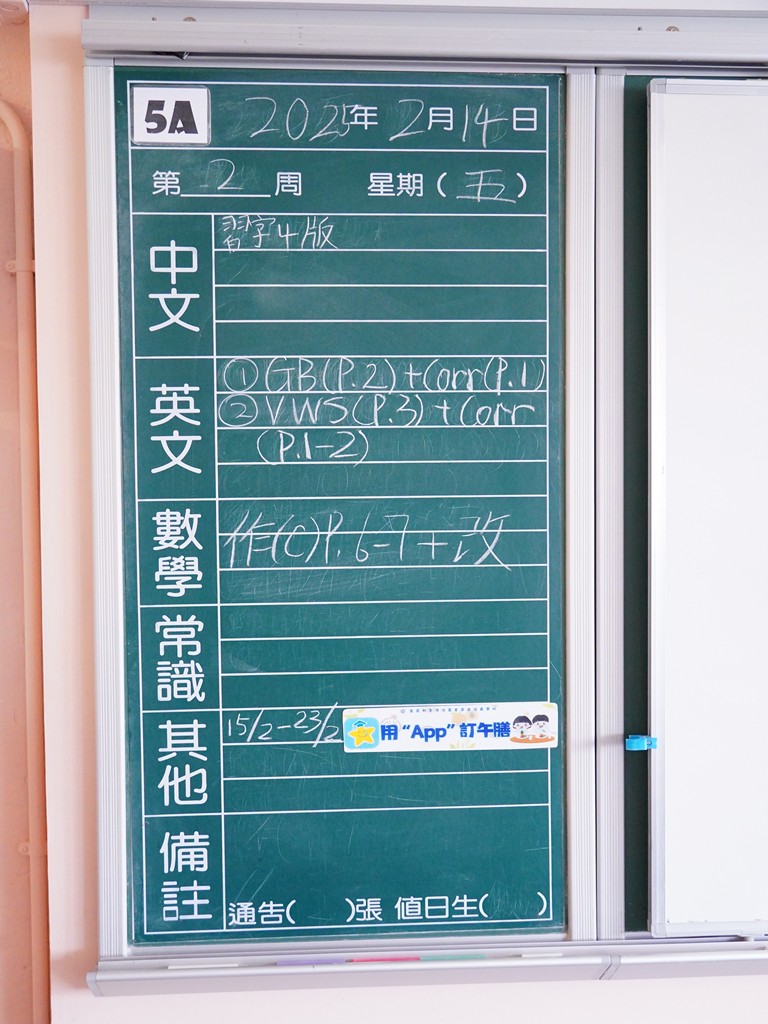 5A 2025年2月14日
第2周 星期(五)
中文
習字4版
英文
①GB(P.2)+Corr(P.1)
②VWS(P.3)+Corr
(P.1-2)
數學
作(C)P.6-7+改
常識
其他
15/2-23/2
用“App”訂午膳
備註
通告( )張 值日生( )